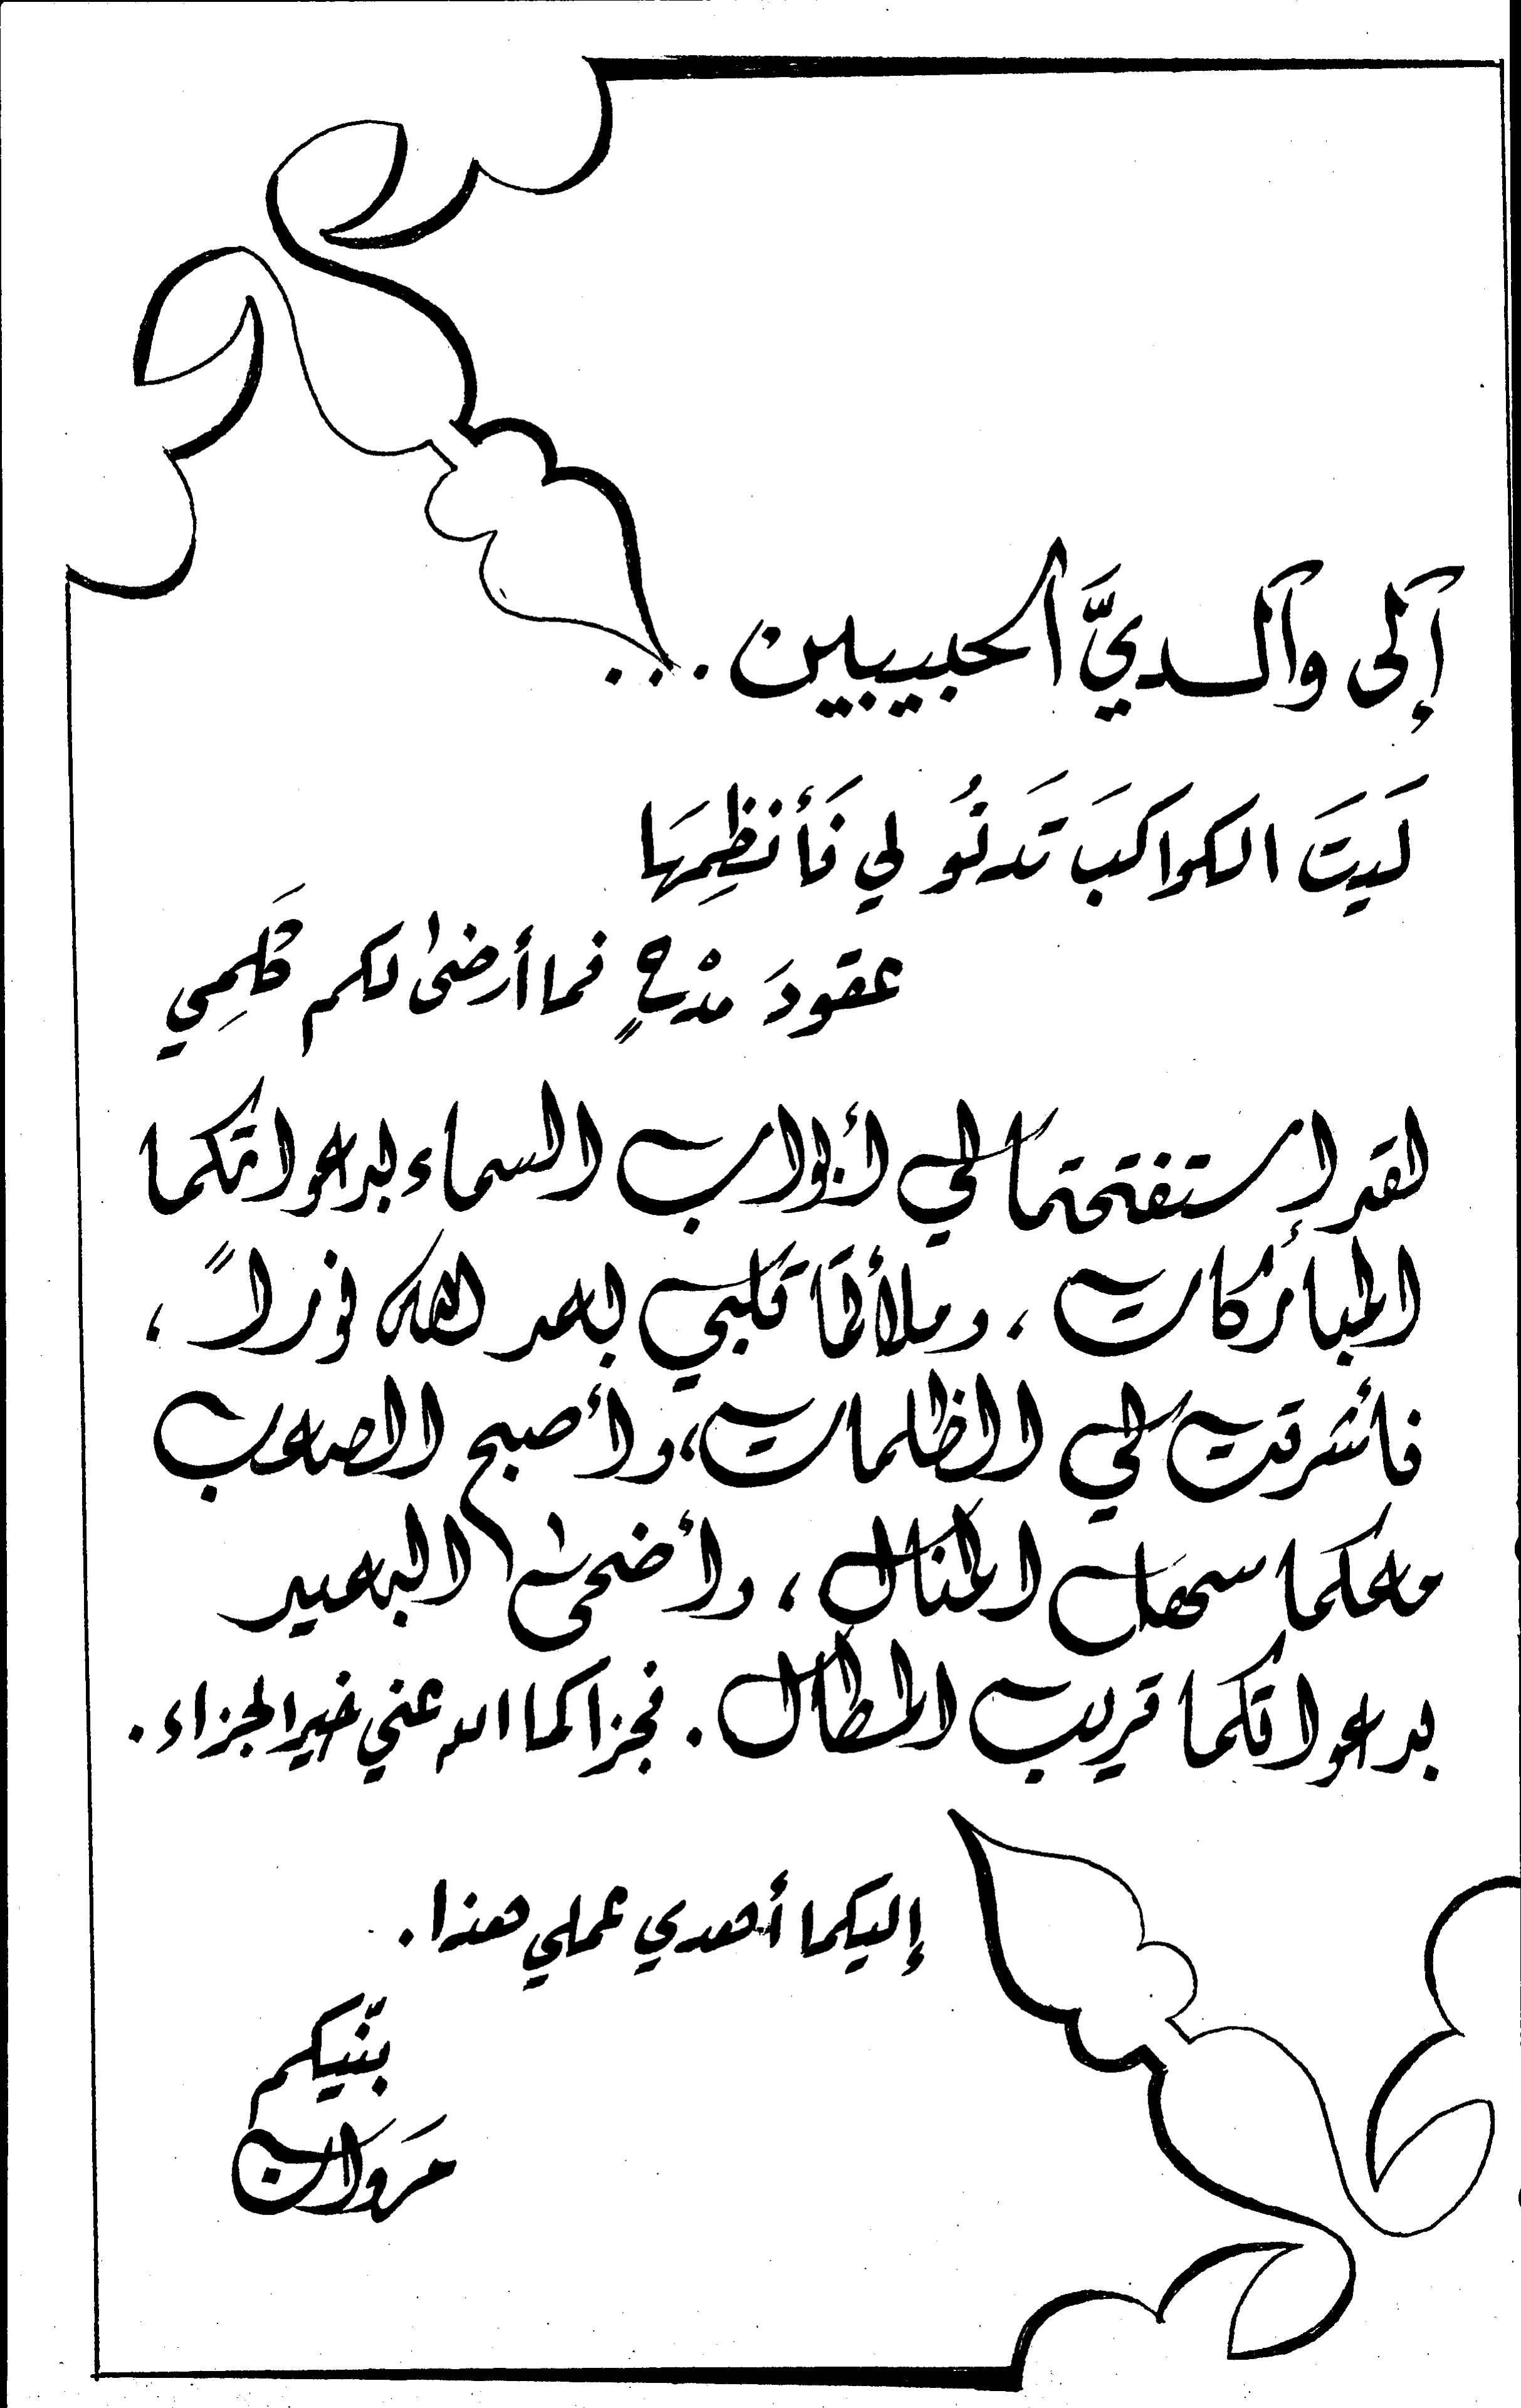 إلى والديَّ الحبيبين...
لَيتَ الكواكبَ تَدنُو لي فَأَنظِمَها
عقودَ مدْحٍ فما أرضىٰ لكم كَلِمِي
لقد استفتحتما لي أبواب السماء بدعواتكما
المباركات، وملأتما قلبي بعد الله نوراً،
فأشرقت لي الظلمات، وأصبح الصعب
معكما سهل المنال، وأضحىٰ البعيد
بدعواتكما قريب المطال. فجزاكما الله عني خير الجزاء.
إليكما أهدي عملي هذا.
بنيّكم
مَروَان